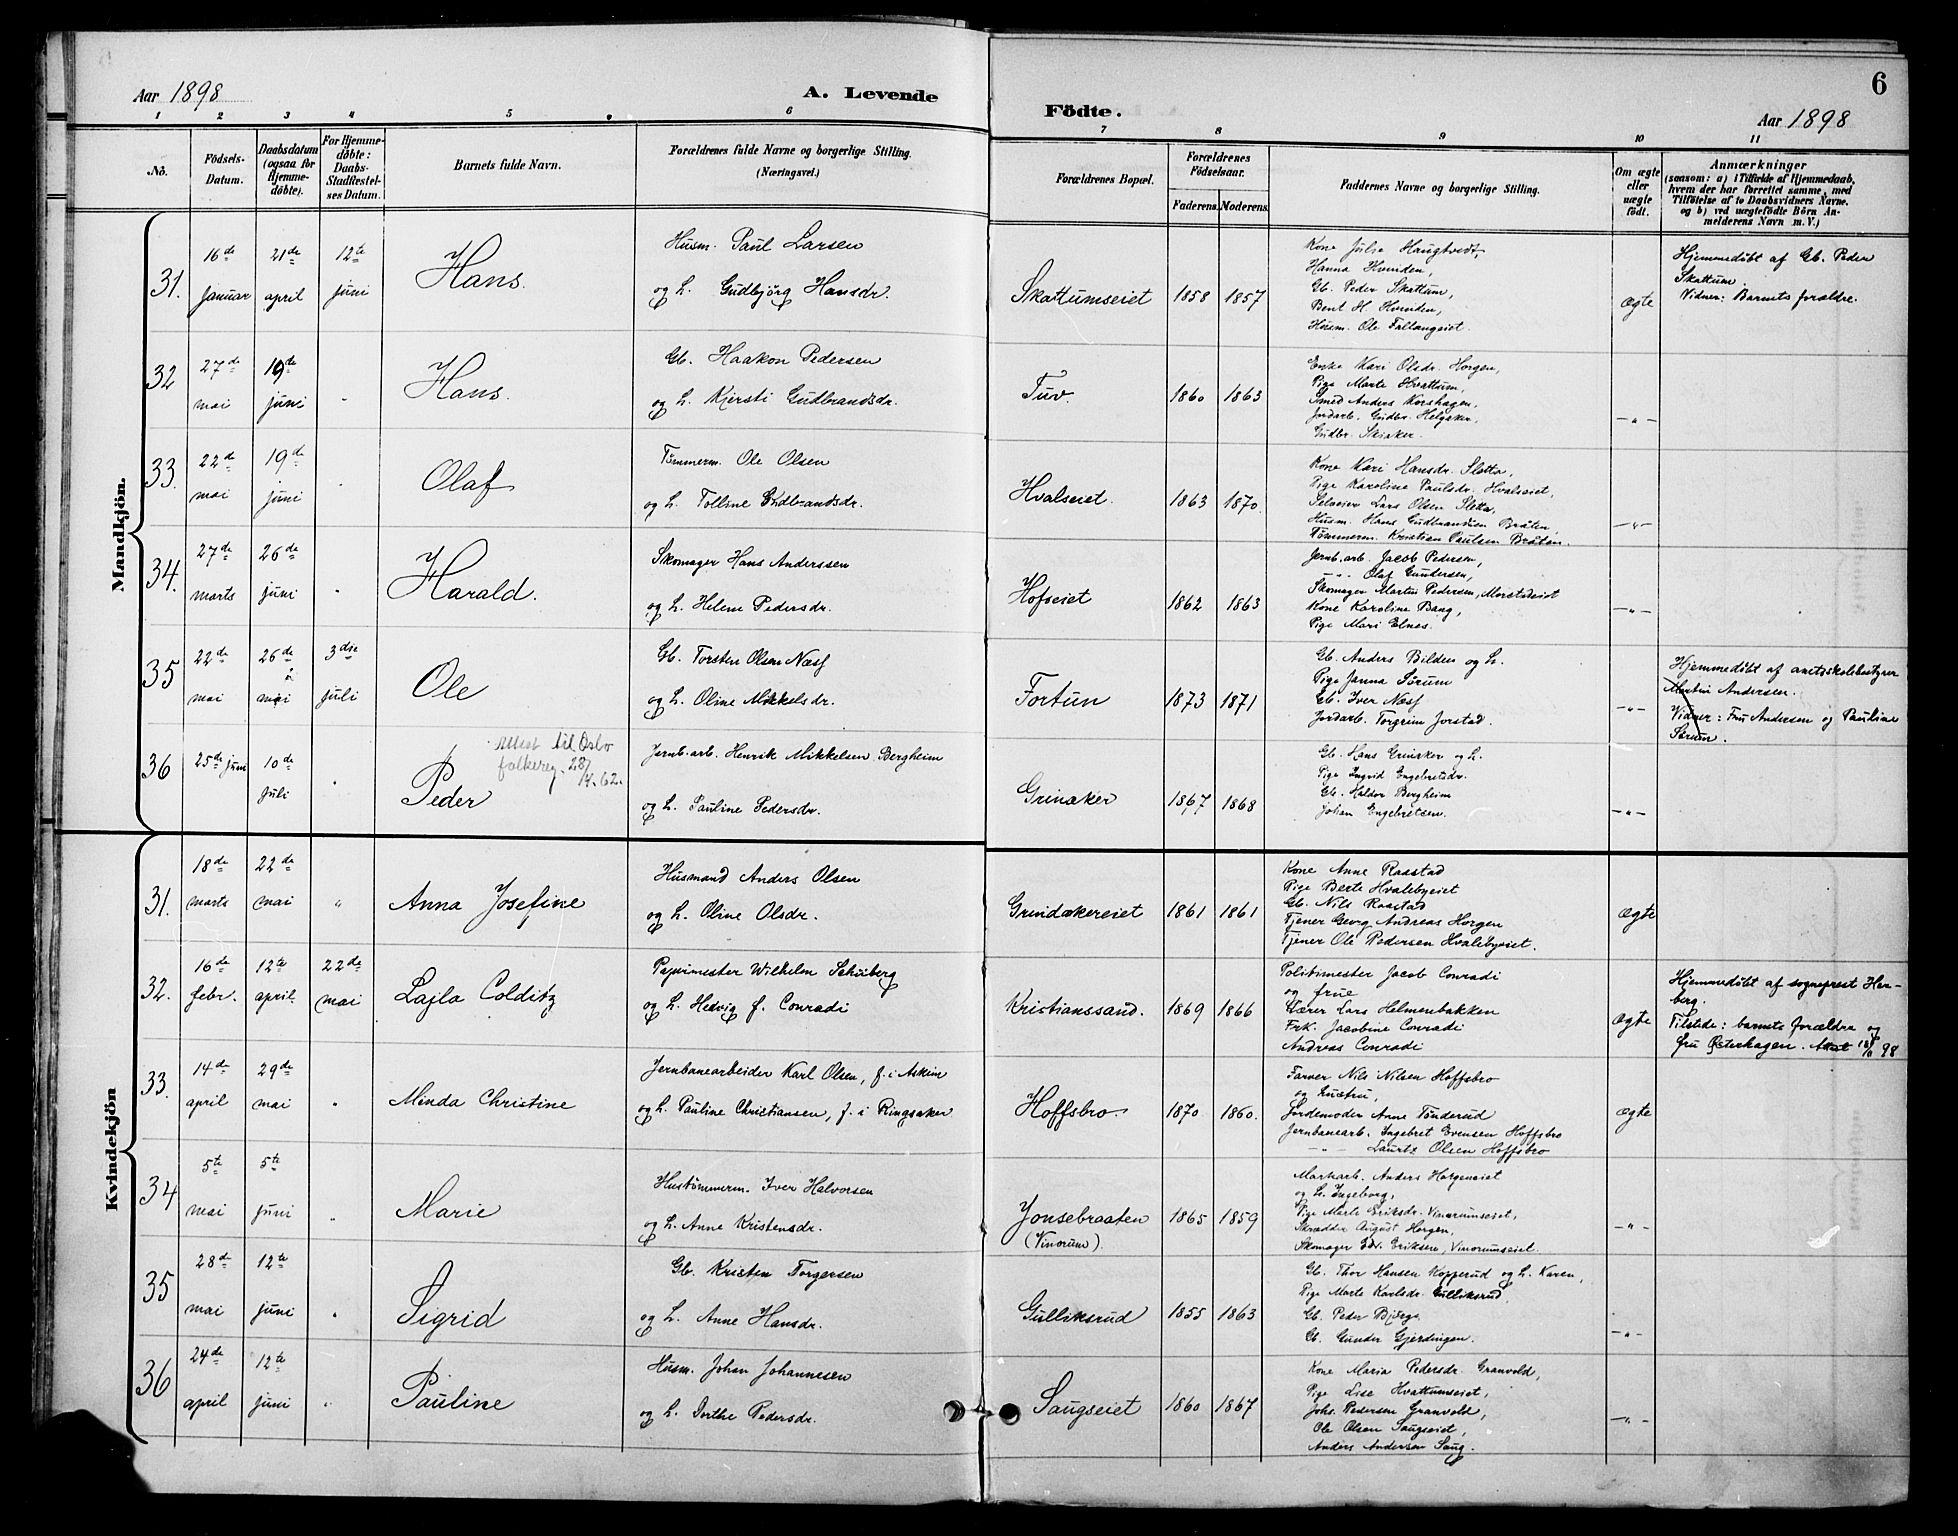 6
Aar 1898 A. Levende Födte. Aar 1898
1 2 3 4 5 6 7 8 9 10 11
No.
Födsels-Datum.
Daabsdatum (ogsaa for Hjemme-döbte).
For Hjemme-döbte: Daabs-Stadfæstel-ses Datum.
Barnets fulde Navn.
Forældrenes fulde Navne og borgerlige Stilling. (Næringsvei.)
Forældrenes Bopæl.
Forældrenes Födselsaar.
Faderens. Moderens.
Faddernes Navne og borgerlige Stilling.
Om ægte eller uægte födt.
Anmærkninger
(saasom: a) i Tilfælde af Hjemmedaab,
hvem der har forrettet samme, med
Tilföielse af to Daabsvidners Navne.
og b) ved uægtefödte Börn An-
melderens Navn m. V.)
Mandkjön.
31. 16de januar 21de april 12te juni
Hans.
Husm. Paul Larsen
og h. Gudbjörg Hansdr.
Skattumseiet 1858 1857
Kone Julie Haugtvedt,
Hanna Hvinden,
Gb. Peder Skattum,
Bent H. Hvinden,
Husm. Ole Faltangeiet.
ægte
Hjemmedöbt af Gb. Peder
Skattum.
Vidner: Barnets forældre.
32 27de mai 19de juni "
Hans.
Gb. Haakon Pedersen
og h. Kjersti Gudbrandsdr.
Tuv. 1860 1863
Enke Kari Olsdr. Horgen,
Pige Marte Hvattum,
Smed Anders Korshagen,
Jordarb. Gudbr. Helgaker,
Gudbr. Skiaker.
— " —
33. 22de mai 19de juni "
Olaf
Tömmerm. Ole Olsen
og h. Tolline Gudbrandsdr.
Hvalseiet. 1863 1870.
Kone Kari Hansdr. Sletta,
Pige Karoline Paulsdr. Hvalseiet,
Selveier Lars Olsen Sletta,
Husm. Hans Gudbrandsen Bråten,
Tömmerm. Kristian Paulsen Bråten.
— " —
34. 27de marts 26de juni "
Harald.
Skomager Hans Anderssen
og h. Helene Pedersdr.
Hofseiet 1862 1863
Jernb.arb. Jacob Pedersen,
— " — Olaf Gundersen,
Skomager Martin Pedersen, Morstadeiet
Kone Karoline Bang,
Pige Mari Elnes.
— " —
35 22de mai 26de mai 3die juli
Ole
Gb. Torsten Olsen Næss
og h. Oline Mikkelsdr.
Fortun 1873 1871
Gb. Anders Bilden og h.
Pige Janna Sörum
Gb. Iver Næss
Jordarb. Torgrim Jorstad.
— " —
Hjemmedöbt af amtsskolebestyrer
Martin Andersen.
Vidner: Fru Andersen og Pauline
Sörum.
36 25de juni 10de juli "
Peder
Attest til Oslo
folkereg. 28/4-62.
Jernb.arb. Henrik Mikkelsen Bergheim
og h. Pauline Pedersdr.
Grinaker 1867 1868
Gb. Hans Grinaker og h.
Pige Ingrid Engebretsdr.
Gb. Haldor Bergheim
Johan Engebretsen.
— " —
Kvindekjön
31. 18de marts 22de mai "
Anna Josefine
Husmand Anders Olsen
og h. Oline Olsdr.
Grindakereiet 1861 1861
Kone Anne Raastad
Pige Berte Hvalebyeiet
Gb. Nils Raastad
Tjener Georg Andreas Horgen
Tjener Ole Pedersen Hvalebyeiet.
ægte
32. 16de febr. 12te april. 22de mai
Lajla Colditz
Papirmester Wilhelm Schiöberg
og h. Hedvig f. Conradi
Kristianssand. 1869 1866
Politimester Jacob Conradi
og frue
Lærer Lars Helmenbakken
Frk. Jacobine Conradi
Andreas Conradi
ægte
Hjemmedöbt af sogneprest Har-
berg.
Tilstede: barnets forældre og
fru Österhagen.
33. 14de april 29de mai "
Minda Christine
Jernbanearbeider Karl Olsen, f. i Askim
og h. Pauline Christiansen, f. i Ringsaker
Hoffsbro. 1870. 1860.
Farver Nils Nilsen Hoffsbro
og hustru,
Jordemoder Anne Tönderud
Jernbanearb. Ingebret Evensen Hoffsbro
— " — Lauritz Olsen Hoffsbro
ægte
34 5te mai 5te juni "
Marie
Hustömmerm. Iver Halvorsen
og h. Anne Kristensdr.
Jonsebraaten (Vinorum). 1865 1859
Markarb. Anders Horgeneiet
og h. Ingeborg,
Pige Marte Eriksdr. Vinorumseiet,
Skrædder August Horgen,
Skomager Edv. Eriksen, Vinorumseiet.
— " —
35 28de mai 12te juni "
Sigrid
Gb. Kristen Torgersen
og h. Anne Hansdr.
Gulliksrud 1855 1863
Gb. Thor Hansen Kopperud og h. Karen,
Pige Marte Karlsdr. Gulliksrud,
Gb. Peder Björge
Gb. Gunder Gjerdingen.
— " —
36 24de april 12te juni "
Pauline
Husm. Johan Johannesen
og h. Dorthe Pedersdr.
Saugseiet 1860 1867
Kone Maria Pedersdr. Granvold,
Pige Lise Hvattumseiet,
Johs. Pedersen Granvold,
Ole Olsen Saugseiet,
Anders Andersen Saug.
— " —